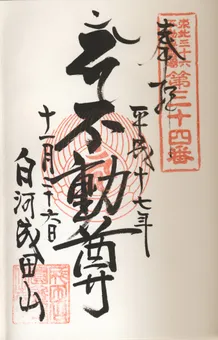 東北三十六
第三十四番
奉拝
平成十七年
不動尊
十一月二十六日
白河成田山